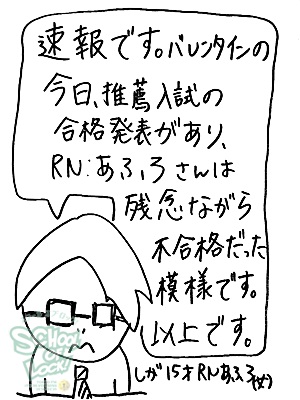 速報です。バレンタインの
今日、推薦入試の
合格発表があり、
RN:あふろさんは
残念ながら
不合格だった
模様です。
以上です。
SCHOOL OF LOCK!
しが 15才 RN あふろ(女)